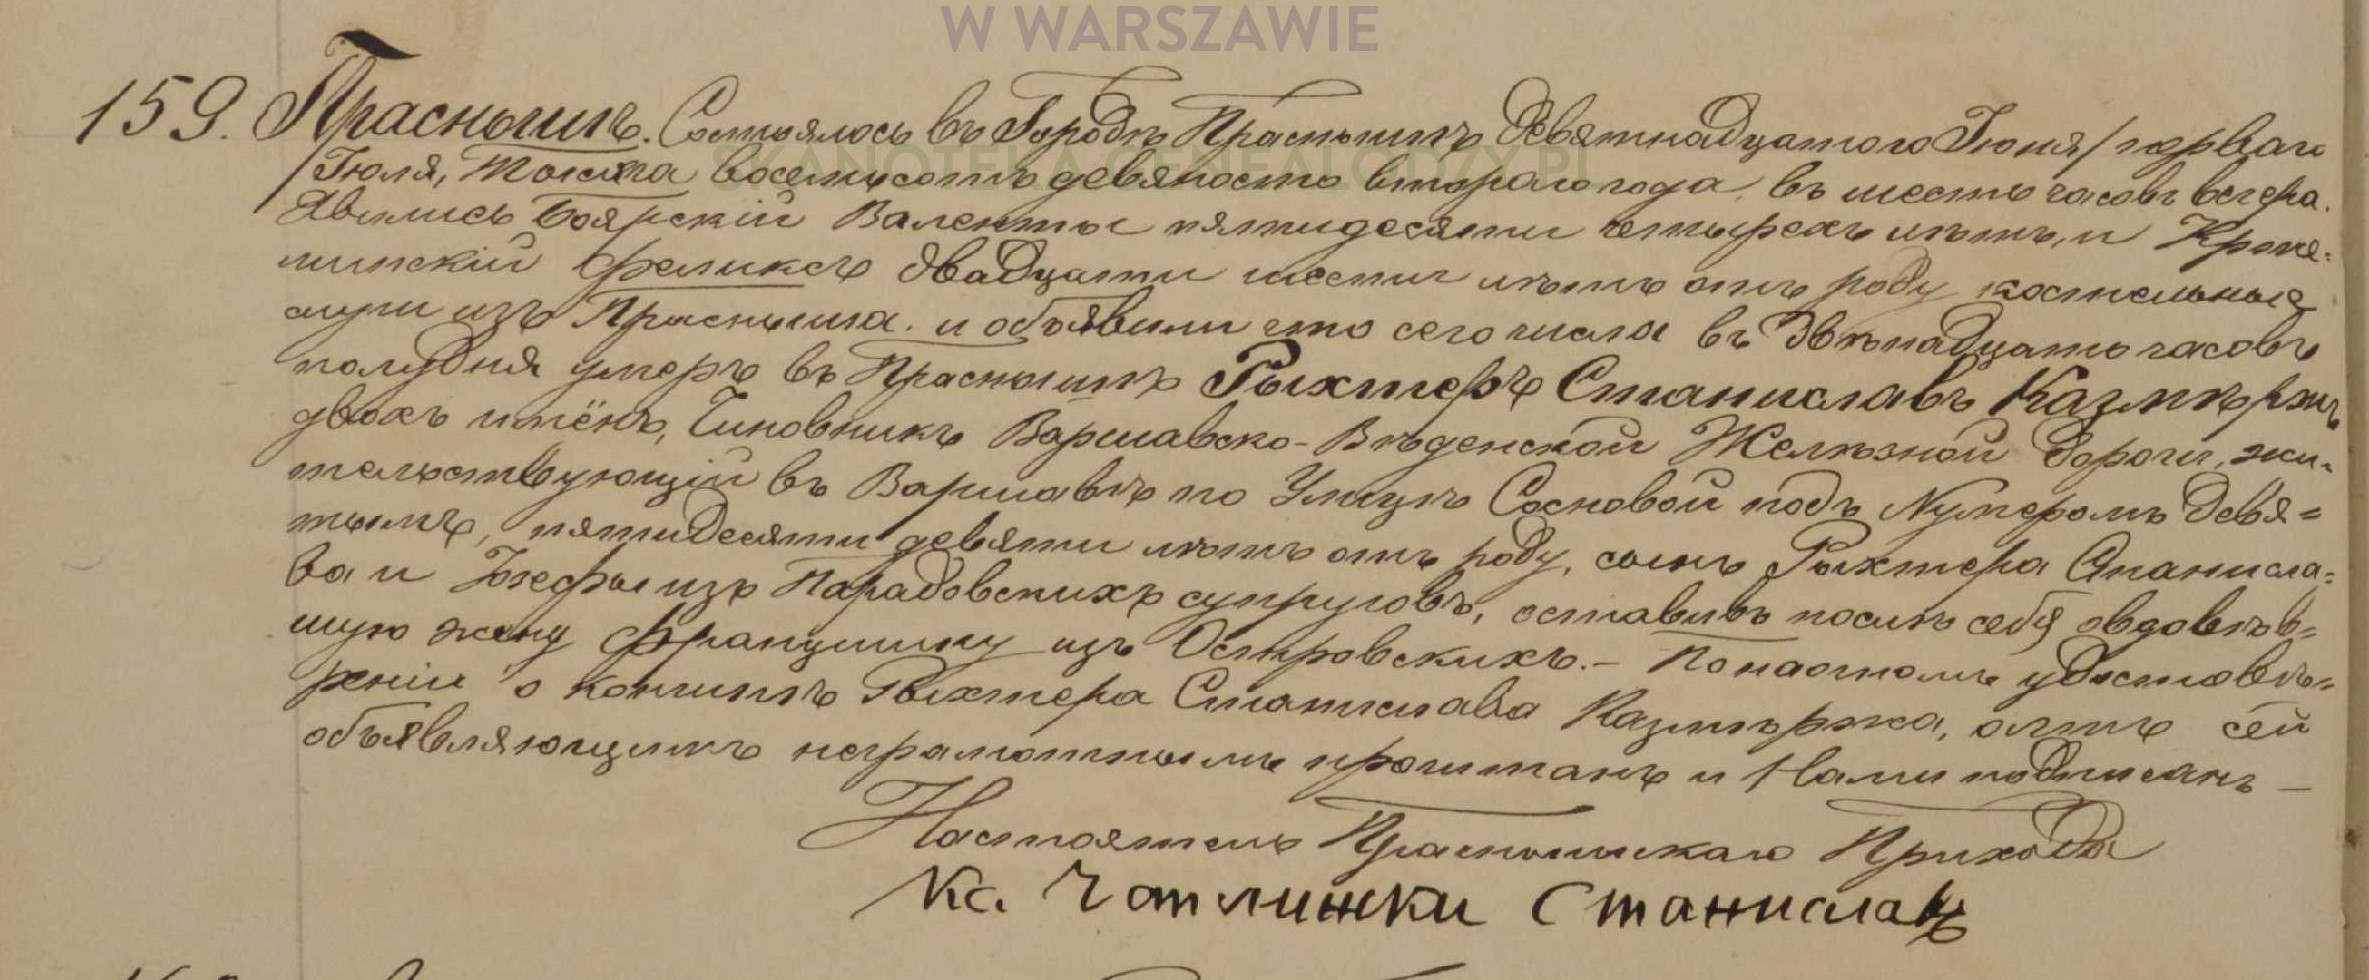 W WARSZAWIE
SKANOTEKA.GENEALODZY.PL
159. Праснышъ. Состоялось въ Городѣ Праснышѣ Девятнадцатого Іюня/перваго
/Іюля, тысяча восемьсотъ девяносто второго года, въ шесть часовъ вечера.
Явились Боярскій Валенты пятидесяти четырехъ лѣтъ, и
Феликсъ двадцати шести лѣтъ отъ роду костельные
слуги изъ Прасныша. и объявили что сего числа въ двѣнадцать часовъ
полудня умеръ въ Праснышѣ Рыхтеръ Станиславъ Казмѣржъ
двохъ имёнъ, Чиновникъ Варшавско-Вѣденской Желѣзной дороги, жи-
тельствующій въ Варшавѣ по Улицѣ Сосновой подъ Нумеромъ девя-
тымъ, пятидесяти девяти лѣтъ отъ роду, сынъ Рыхтера Станисла-
ва и Юзефы изъ Парадовскихъ супруговъ, оставивъ послѣ себя овдовѣв-
шую жену Францишку изъ Островскихъ.- По настномъ удостовѣ-
реніи о кончинѣ Рыхтера Станислава Казмѣржа, актъ сей
объявляющимъ неграмотнымъ прочитанъ и Нами подписанъ —
Настоятель Праснышскаго Прихода
Кс. Чаплинжки Станиславъ